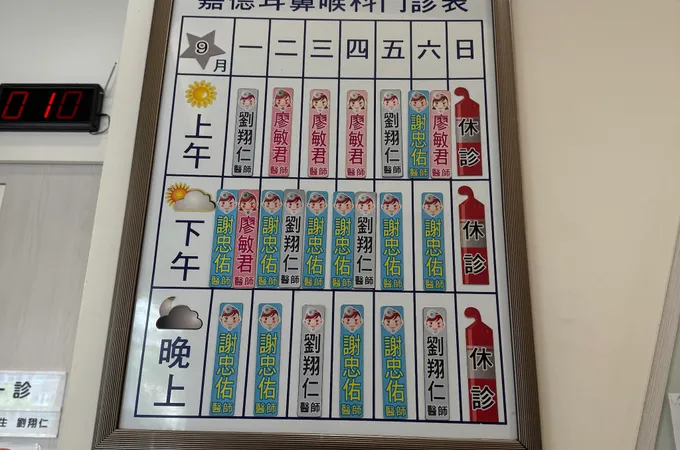 嘉德耳鼻喉科門診表
9月 一 二 三 四 五 六 日
上午 劉翔仁醫師 廖敏君醫師 廖敏君醫師 廖敏君醫師 劉翔仁醫師 謝忠佑醫師 廖敏君醫師 休診
下午 謝忠佑醫師 廖敏君醫師 謝忠佑醫師 劉翔仁醫師 謝忠佑醫師 謝忠佑醫師 劉翔仁醫師 謝忠佑醫師 謝忠佑醫師 休診
晚上 謝忠佑醫師 謝忠佑醫師 劉翔仁醫師 謝忠佑醫師 謝忠佑醫師 劉翔仁醫師 休診
010
診
生 劉翔仁